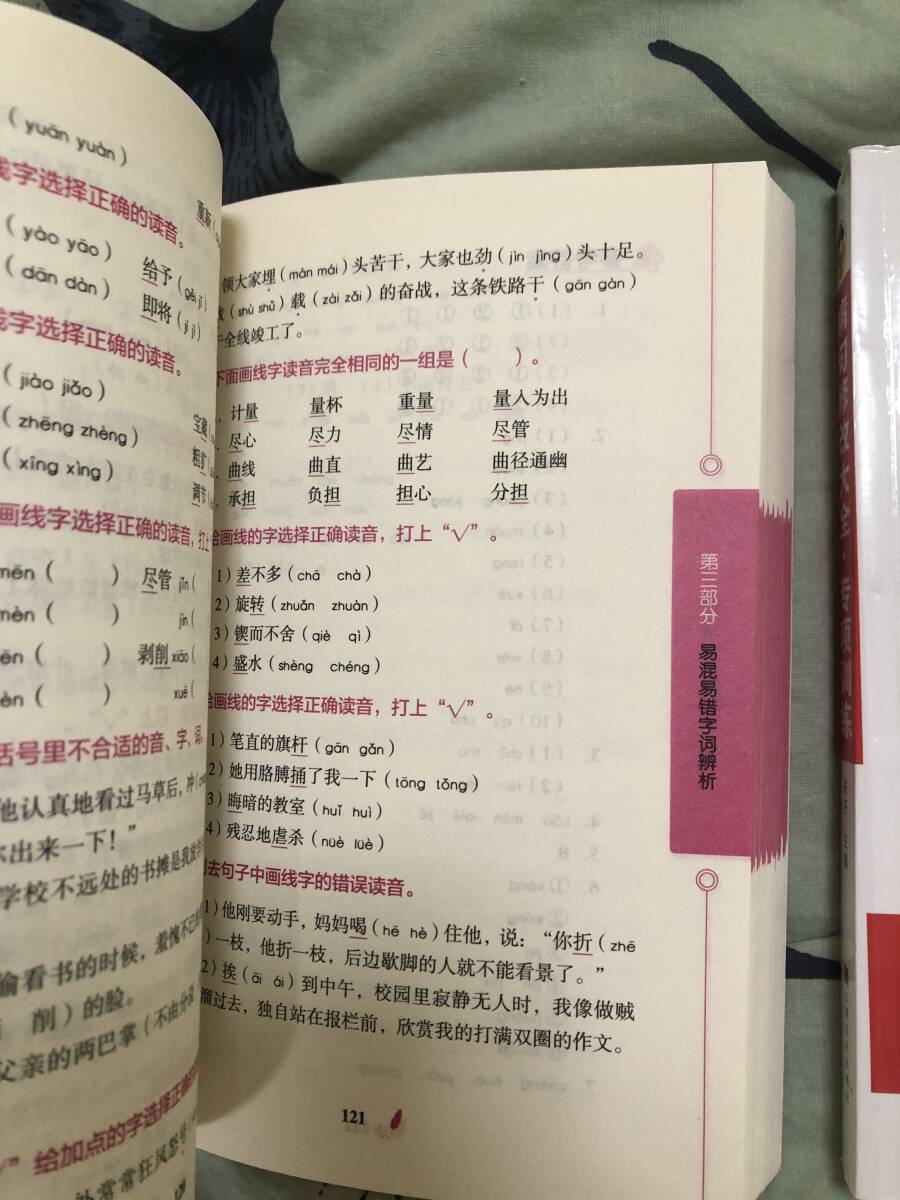 （yuān yuàn）
线字选择正确的读音。
（yào yāo）
（dān dàn）
给予（gěi jǐ）
即将（jí jì）
线字选择正确的读音。
（jiào jiǎo）
（zhēng zhèng）
（xīng xìng）
宝藏
粗犷
调节
画线字选择正确的读音，打上
mēn（　　）
尽管 jǐn（
mèn（　　）
jìn（
剥削 xiāo（
xuē（
括号里不合适的音、字、词
他认真地看过马草后，冲
尔出来一下！”
学校不远处的书摊是我放学
偷看书的时候，羞愧不已
削）的脸。
父亲的两巴掌（不由分说
”给加点的字选择正确
处常常狂风怒号（
领大家埋（mán mái）头苦干，大家也劲（jìn jìng）头十足。
（shù shǔ）载（zài zǎi）的奋战，这条铁路干（gān gàn）
于全线竣工了。
下面画线字读音完全相同的一组是（　　）。
计量　量杯　重量　量入为出
尽心　尽力　尽情　尽管
曲线　曲直　曲艺　曲径通幽
承担　负担　担心　分担
给画线的字选择正确读音，打上“√”。
1）差不多（chā chà）
2）旋转（zhuǎn zhuàn）
3）锲而不舍（qiè qì）
4）盛水（shèng chéng）
给画线的字选择正确读音，打上“√”。
1）笔直的旗杆（gān gǎn）
2）她用胳膊捅了我一下（tōng tǒng）
3）晦暗的教室（huǐ huì）
4）残忍地虐杀（nüè lüè）
去句子中画线字的错误读音。
1）他刚要动手，妈妈喝（hē hè）住他，说：“你折（zhē
）一枝，他折一枝，后边歇脚的人就不能看景了。”
2）挨（āi ái）到中午，校园里寂静无人时，我像做贼
溜过去，独自站在报栏前，欣赏我的打满双圈的作文。
121
第三部分　易混易错字词辨析
病句修改大全·专项训练